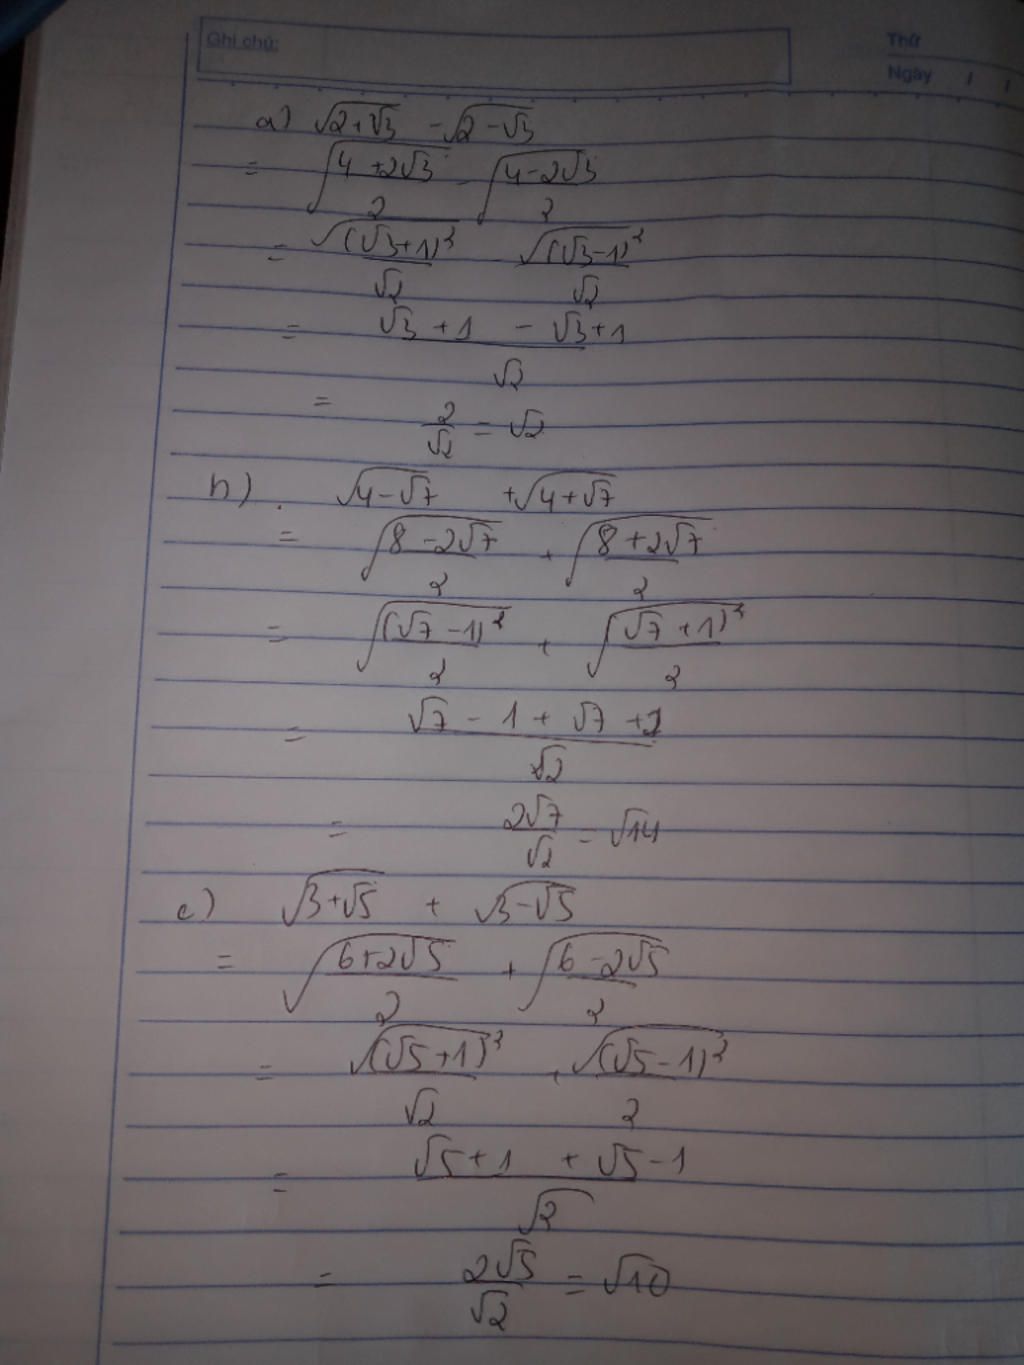 Ghi chú:
Thứ
Ngày / /
a) √(2+√3) - √(2-√3)
= √((4+2√3)/2) - √((4-2√3)/2)
= √((√3+1)²)/√2 - √((√3-1)²)/√2
= (√3+1 - √3+1)/√2
= 2/√2 = √2
b) √(4-√7) + √(4+√7)
= √((8-2√7)/2) + √((8+2√7)/2)
= √((√7-1)²/2) + √((√7+1)²/2)
= (√7 - 1 + √7 + 1)/√2
= 2√7/√2 = √14
c) √(3+√5) + √(3-√5)
= √((6+2√5)/2) + √((6-2√5)/2)
= √((√5+1)²)/√2 + √((√5-1)²)/2
= (√5+1 + √5-1)/√2
= 2√5/√2 = √10